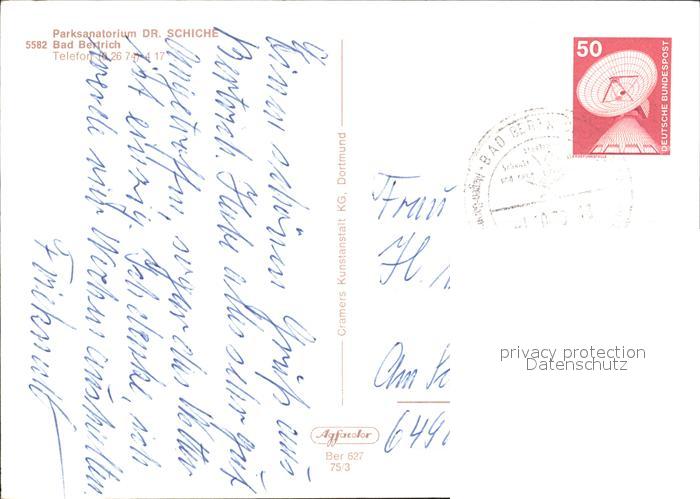 Parksanatorium DR. SCHICHE
5582 Bad Bertrich
Telefon (0 26 74) 4 17
Einen schönen Gruß aus
Bertrich. Habe alles sehr gut
angetroffen, sogar das Wetter
ist einzig. Ich denke, ich
werde vier Wochen aushalten.
Cramers Kunstanstalt KG, Dortmund
Agfacolor
Ber 627
75/3
50
DEUTSCHE BUNDESPOST
BAD BERTR
Frau
H.
Am
649
privacy protection
Datenschutz